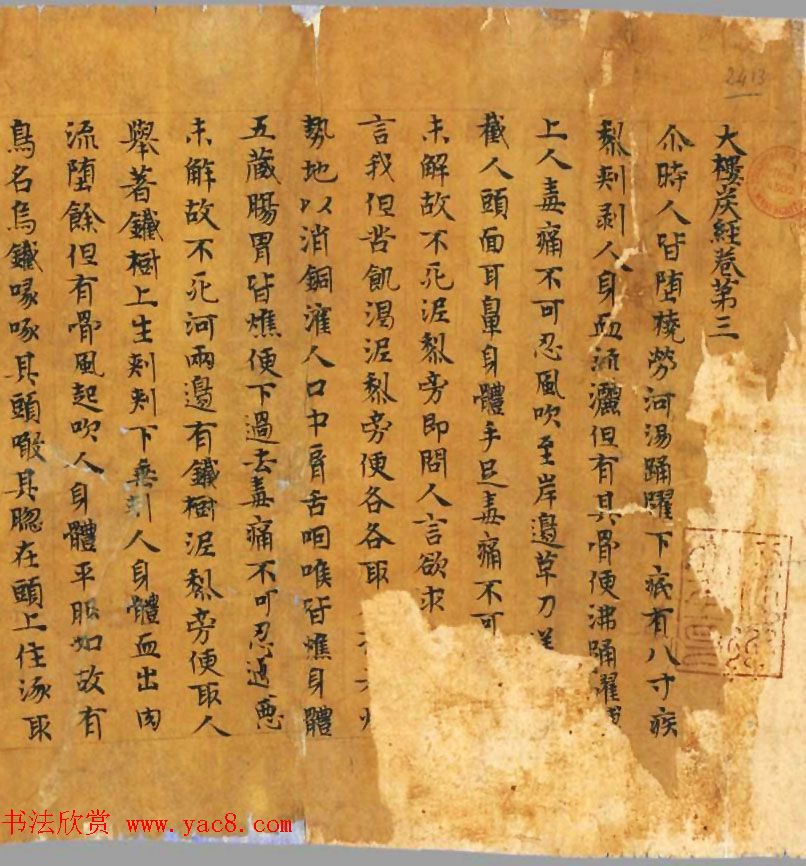 大樓炭經卷第三
尒時人皆墮橈勞河湯踊躍下底有八寸疾
梨刾剥人身血流灑但有其骨便沸踊躍
上人毒痛不可忍風吹至岸邊草刀
截人頭面耳鼻身體手足毒痛不可
未解故不死泥梨旁即問人言欲求
言我但苦飢渴泥梨旁便各各取
勢地以消銅灌人口中脣舌咽喉皆燋身體
五藏腸胃皆燋便下過去毒痛不可忍過惡
未解故不死河兩邊有鐵樹泥梨旁便取人
舉著鐵樹上生刾刾下垂刾人身體血出肉
流墮餘但有骨風起吹人身體平服如故有
鳥名烏鐵喙啄其頭噉其腦在頭上住啄取
2413
书法欣赏 www.yac8.com